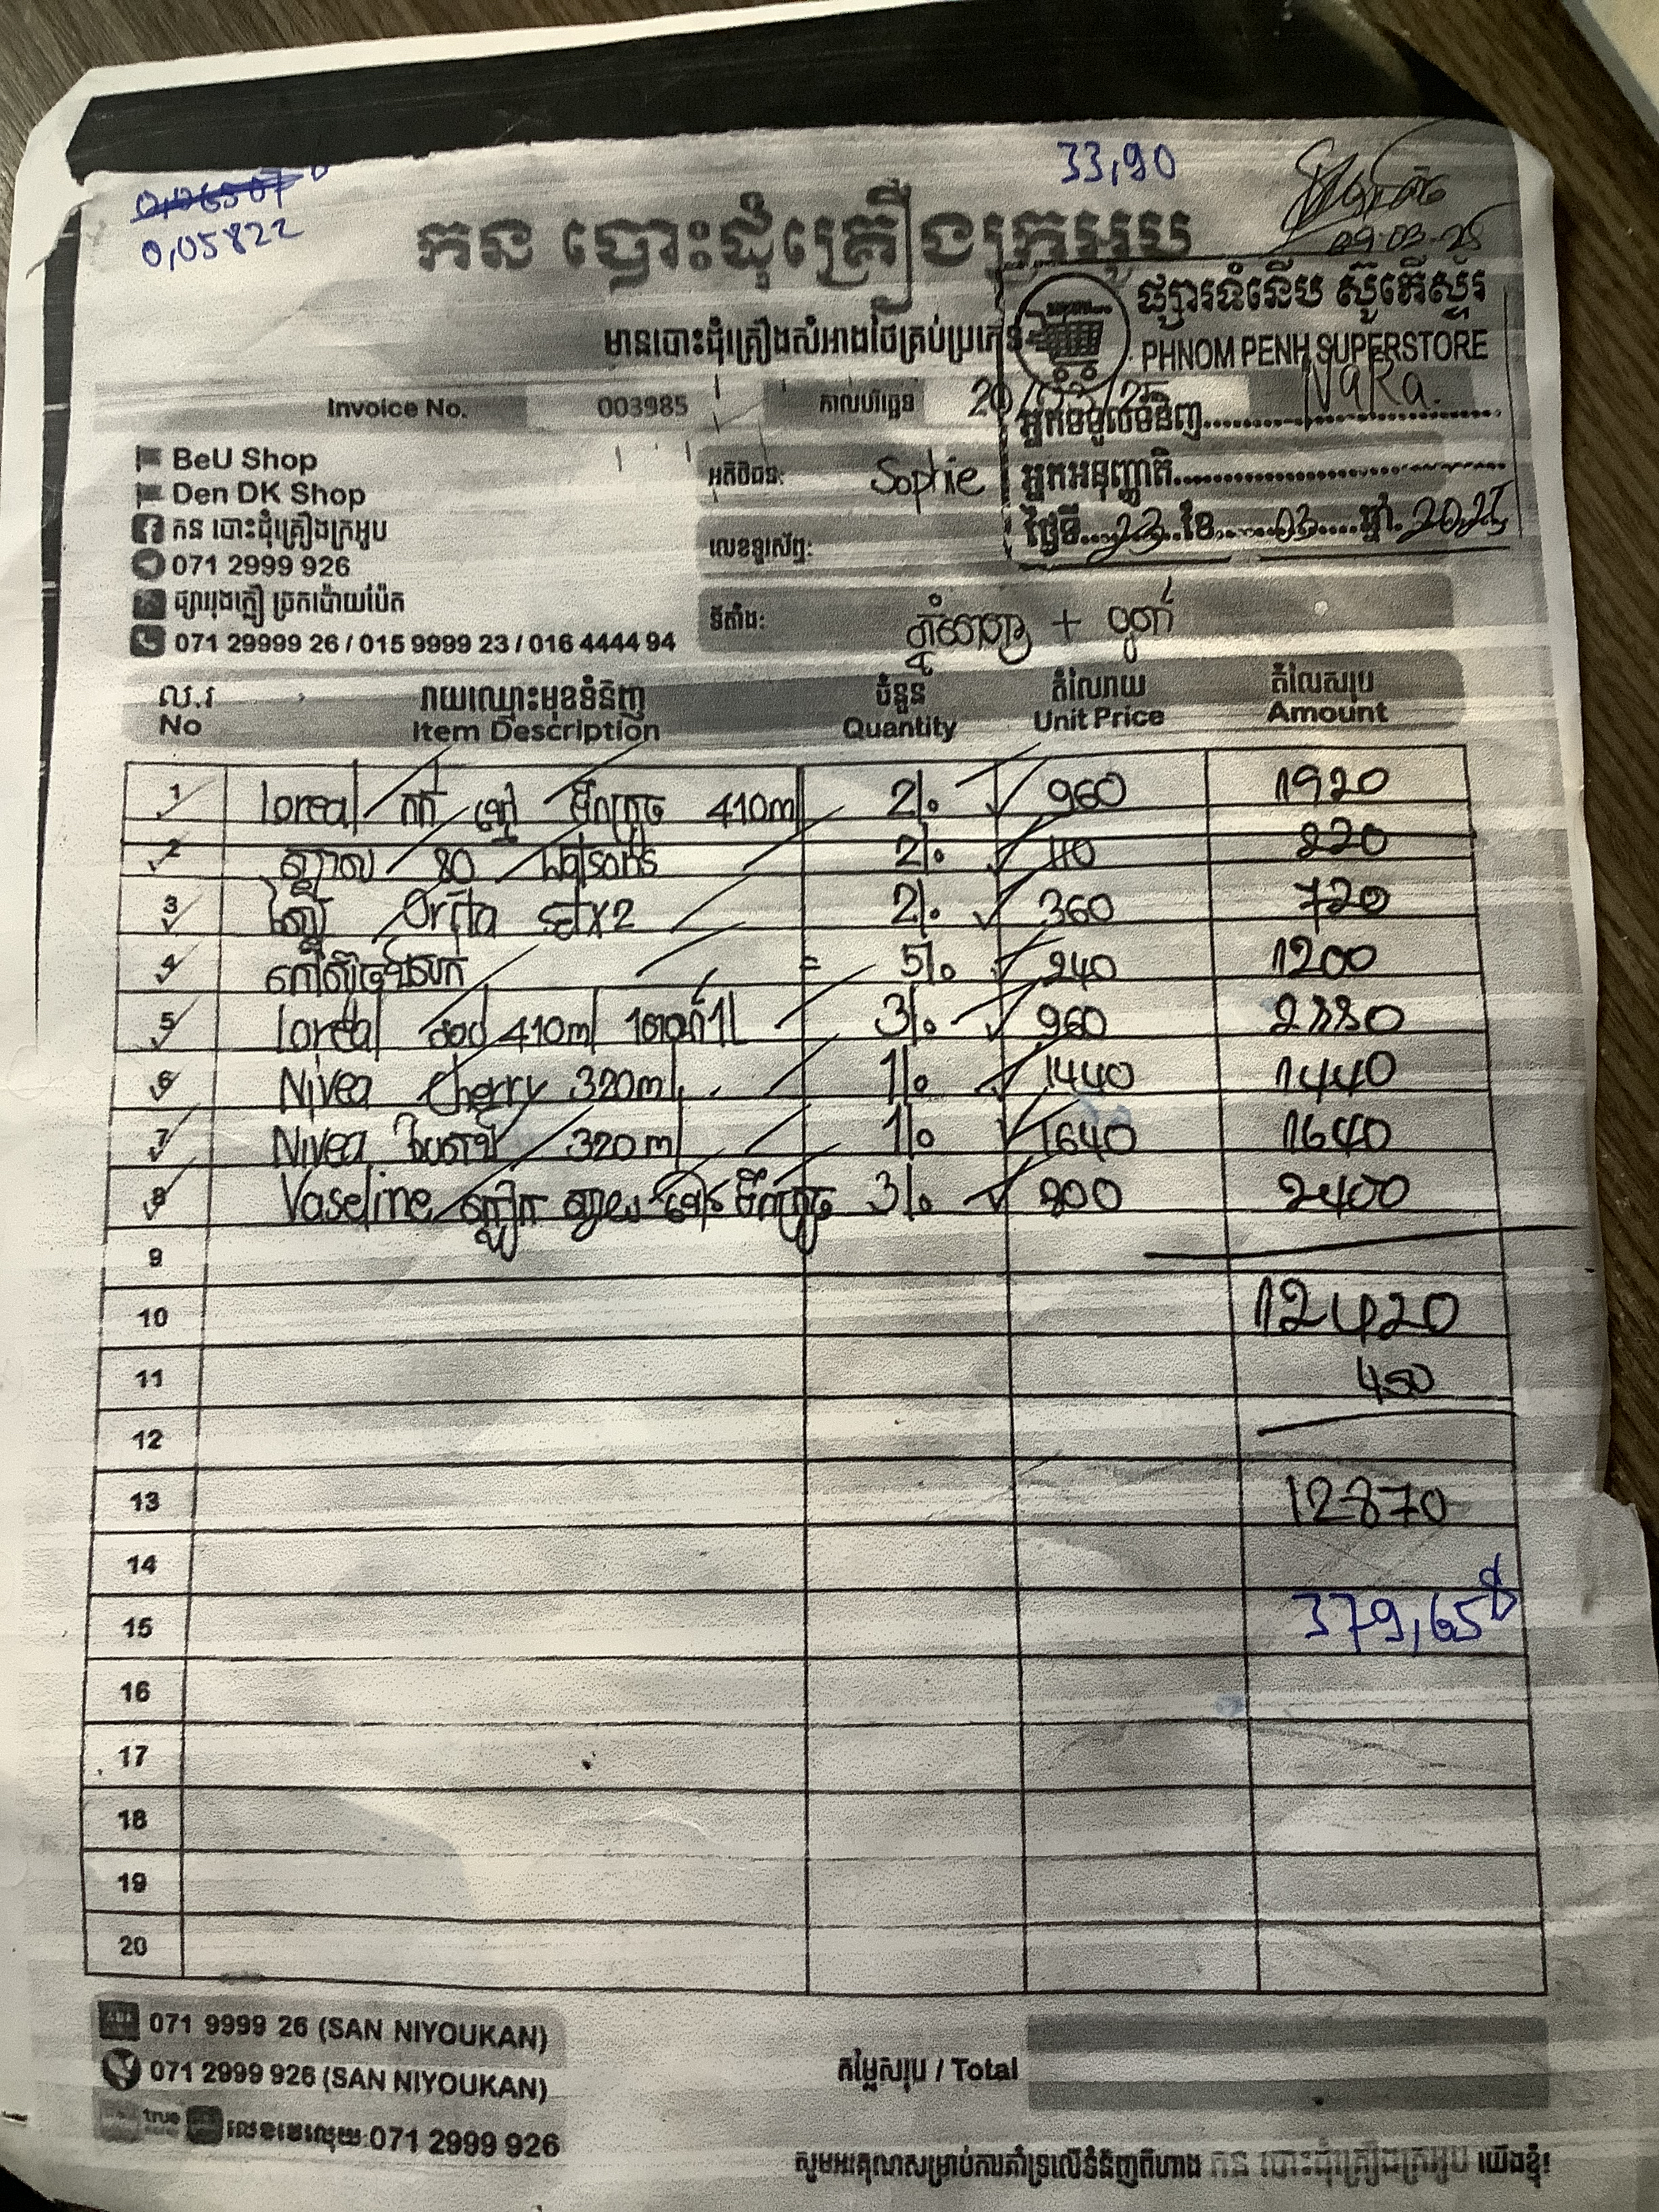 33,90
0,05822
09-03-25
កន បោះដុំគ្រឿងក្រអូប
មានបោះដុំគ្រឿងសំអាងថៃគ្រប់ប្រភេទ
ផ្សារទំនើប ស៊ូភើស្ទ័រ
PHNOM PENH SUPERSTORE
អ្នកទទួលទំនិញ NaRa.
អ្នកអនុញ្ញាតិ
ថ្ងៃទី 23 ខែ 03 ឆ្នាំ 2025
Invoice No. 003985 កាលបរិច្ឆេទ 20/03/25
BeU Shop
Den DK Shop
កន បោះដុំគ្រឿងក្រអូប
071 2999 926
ផ្សាររុងក្លឿ ច្រកប៉ោយប៉ែត
071 29999 26 / 015 9999 23 / 016 4444 94
អតិថិជន: Sophie
លេខទូរស័ព្ទ:
ទីតាំង: +
ល.រ រាយឈ្មោះមុខទំនិញ ចំនួន តំលៃរាយ តំលៃសរុប
No Item Description Quantity Unit Price Amount
1 loreal ទឹកក្រូច 410ml 2 960 1920
2 ស្វាយ 80 Watsons 2 110 220
3 Orita x2 2 360 720
4 5 240 1200
5 loreal 410ml 3 960 2880
6 Nivea Cherry 320ml 1 1440 1440
7 Nivea 320ml 1 1640 1640
8 Vaseline ស្វាយ ទឹកក្រូច 3 800 2400
9
10 12420
11 450
12
13 12870
14
15 379,65$
16
17
18
19
20
071 9999 26 (SAN NIYOUKAN)
071 2999 926 (SAN NIYOUKAN)
true លេខវេរលុយ 071 2999 926
តម្លៃសរុប / Total
សូមអរគុណសម្រាប់ការគាំទ្រលើទំនិញពីហាង កន បោះដុំគ្រឿងក្រអូប យើងខ្ញុំ!